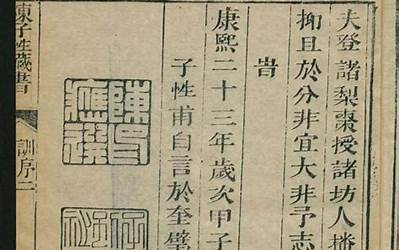 夫登諸梨棗授諸坊人播
抑且於分非宜大非予志
旹
康熙二十三年歲次甲子
子性甫自言於奎壁
陳子性藏書
訓序二